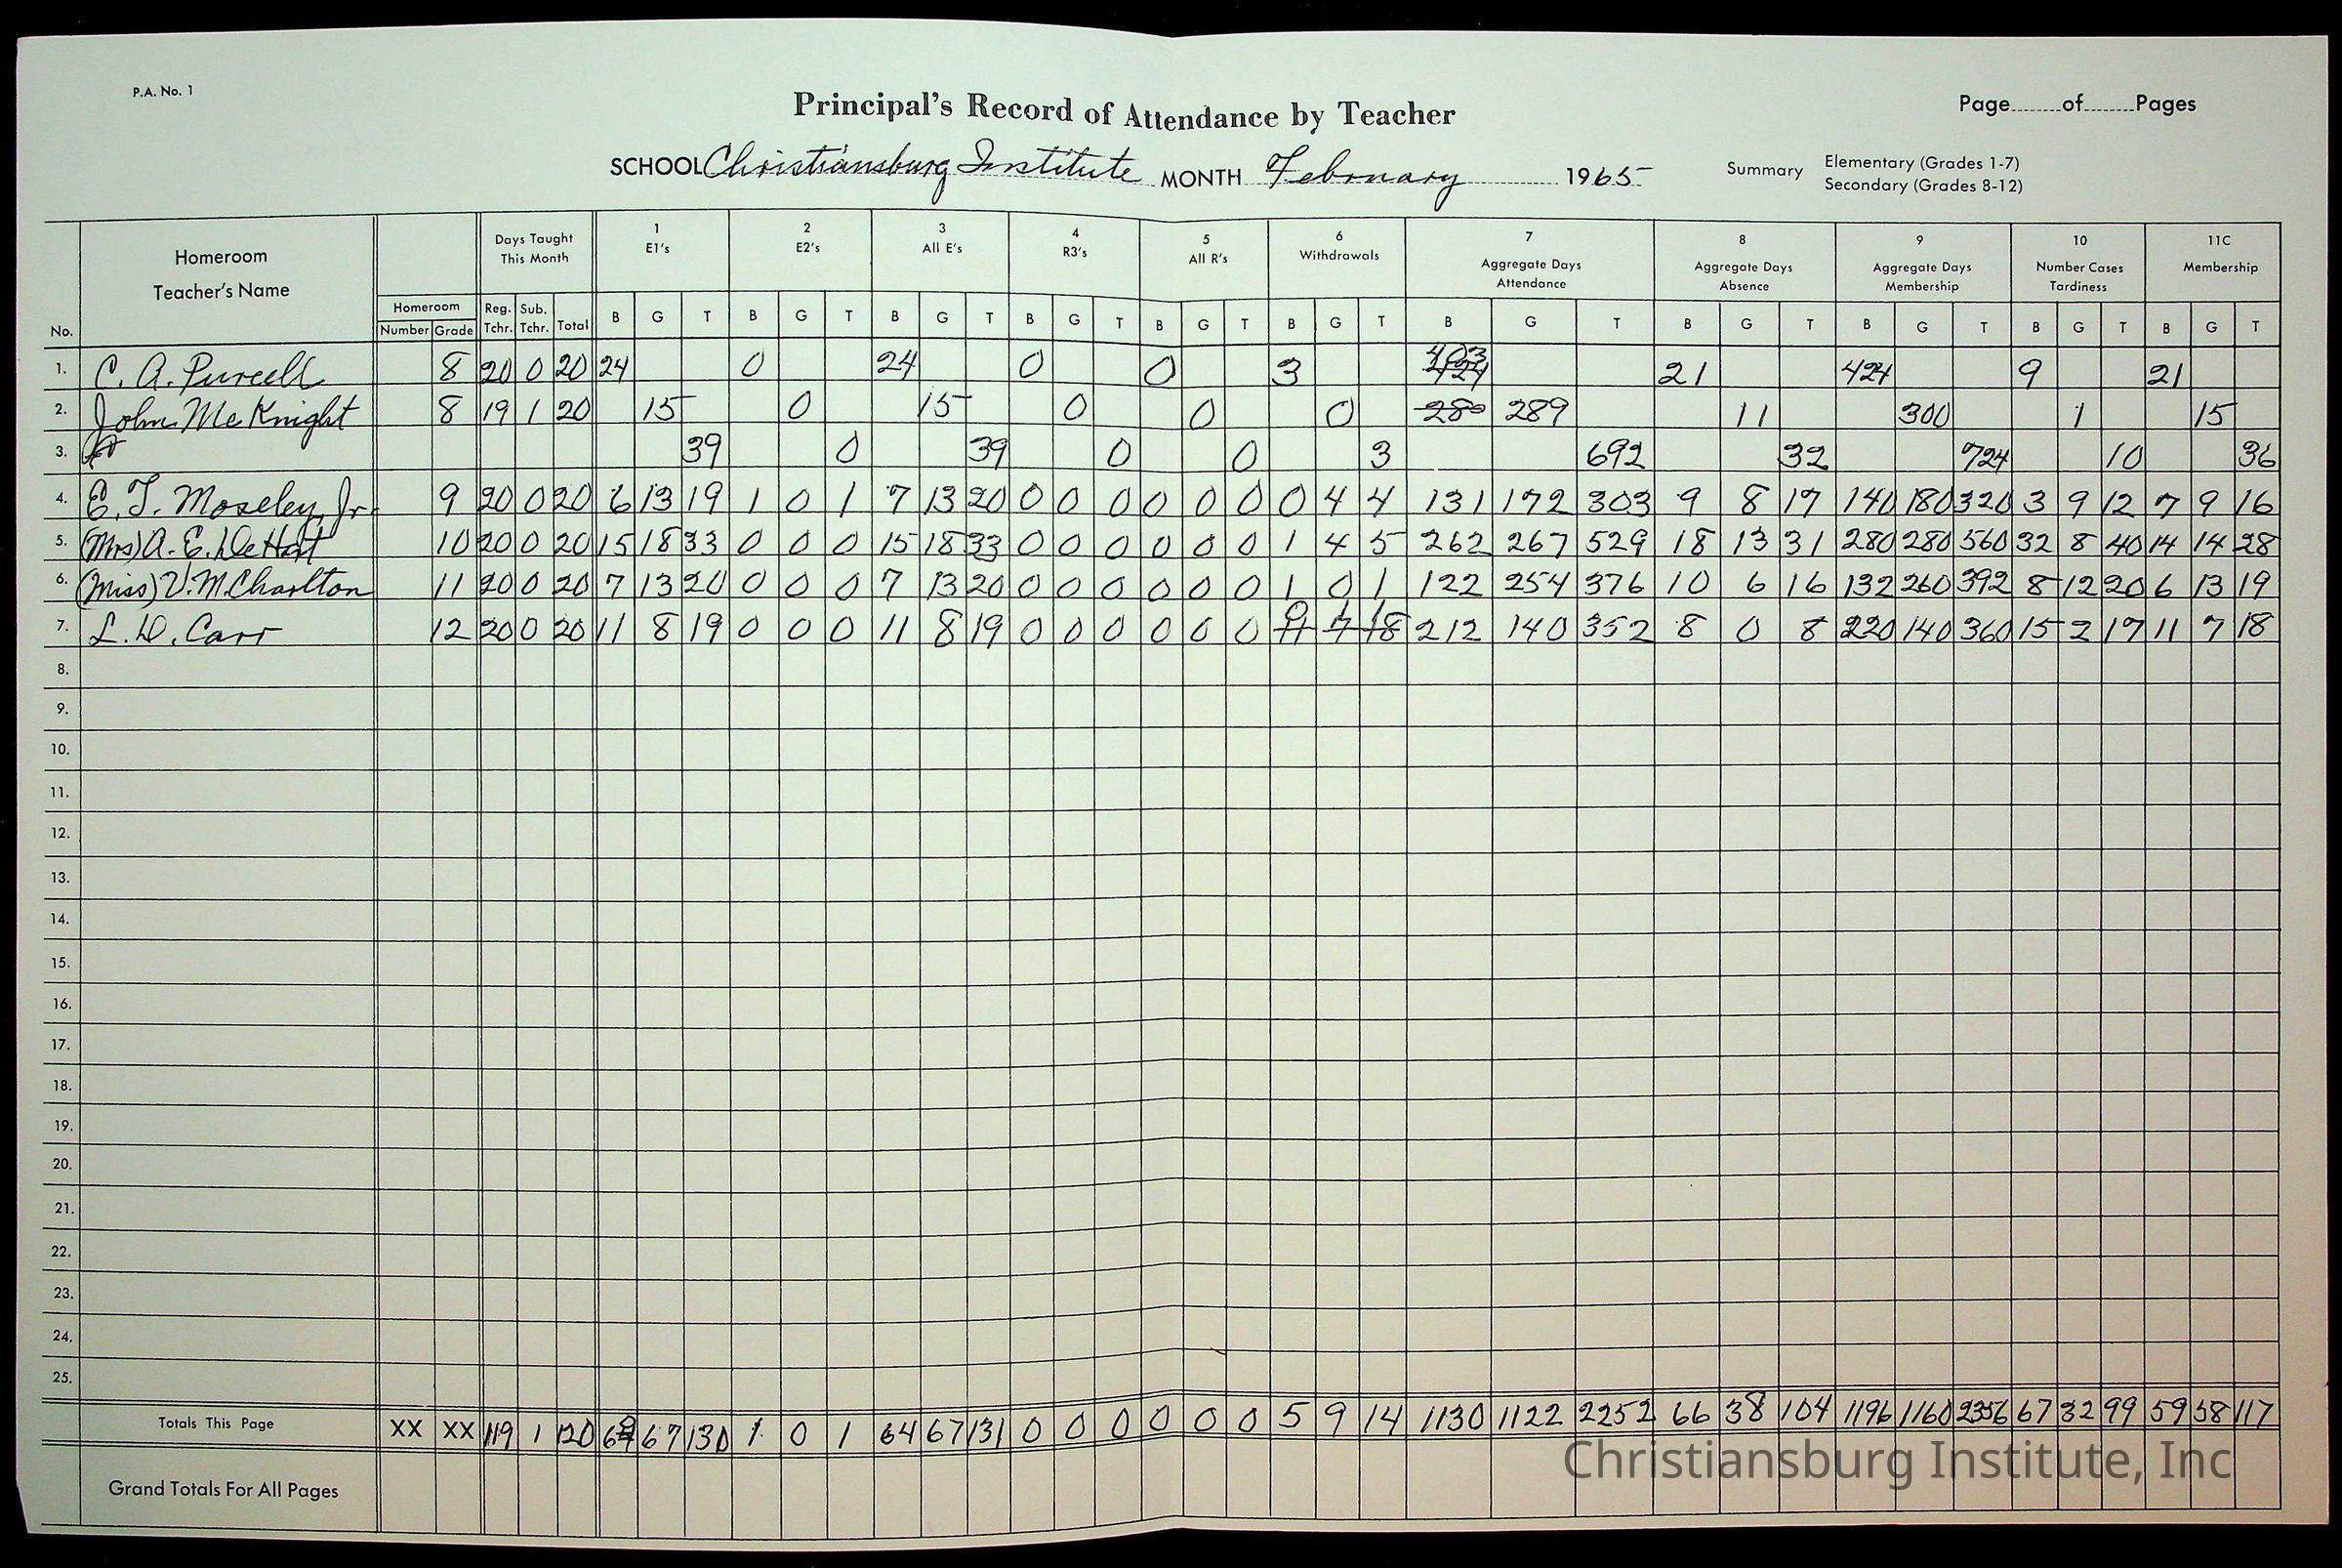 P.A. No. 1
Principal's Record of Attendance by Teacher
Page........of........Pages
SCHOOL Christiansburg Institute MONTH February 1965
Summary Elementary (Grades 1-7)
Secondary (Grades 8-12)
No. Homeroom Teacher's Name Homeroom Number Grade Days Taught This Month Reg. Tchr. Sub. Tchr. Total
1 E1's B G T 2 E2's B G T 3 All E's B G T 4 R3's B G T 5 All R's B G T 6 Withdrawals B G T 7 Aggregate Days Attendance B G T 8 Aggregate Days Absence B G T 9 Aggregate Days Membership B G T 10 Number Cases Tardiness B G T 11C Membership B G T
1. C. A. Purcell 8 20 0 20 24 0 24 0 0 3 403 424 21 424 9 21
2. John McKnight 8 19 1 20 15 0 15 0 0 0 280 289 11 300 1 15
3. 39 0 39 0 0 3 692 32 724 10 36
4. E. T. Moseley, Jr. 9 20 0 20 6 13 19 1 0 1 7 13 20 0 0 0 0 0 0 0 4 4 131 172 303 9 8 17 140 180 320 3 9 12 7 9 16
5. (Mrs) A. E. DeHart 10 20 0 20 15 18 33 0 0 0 15 18 33 0 0 0 0 0 0 1 4 5 262 267 529 18 13 31 280 280 560 32 8 40 14 14 28
6. (Miss) V. M. Charlton 11 20 0 20 7 13 20 0 0 0 7 13 20 0 0 0 0 0 0 1 0 1 122 254 376 10 6 16 132 260 392 8 12 20 6 13 19
7. L. D. Carr 12 20 0 20 11 8 19 0 0 0 11 8 19 0 0 0 0 0 0 212 140 352 8 0 8 220 140 360 15 2 17 11 7 18
8.
9.
10.
11.
12.
13.
14.
15.
16.
17.
18.
19.
20.
21.
22.
23.
24.
25.
Totals This Page XX XX 119 1 120 67 130 1 0 1 64 67 131 0 0 0 0 0 0 5 9 14 1130 1122 2252 66 38 104 1196 1160 2356 67 32 99 59 58 117
Grand Totals For All Pages
Christiansburg Institute, Inc